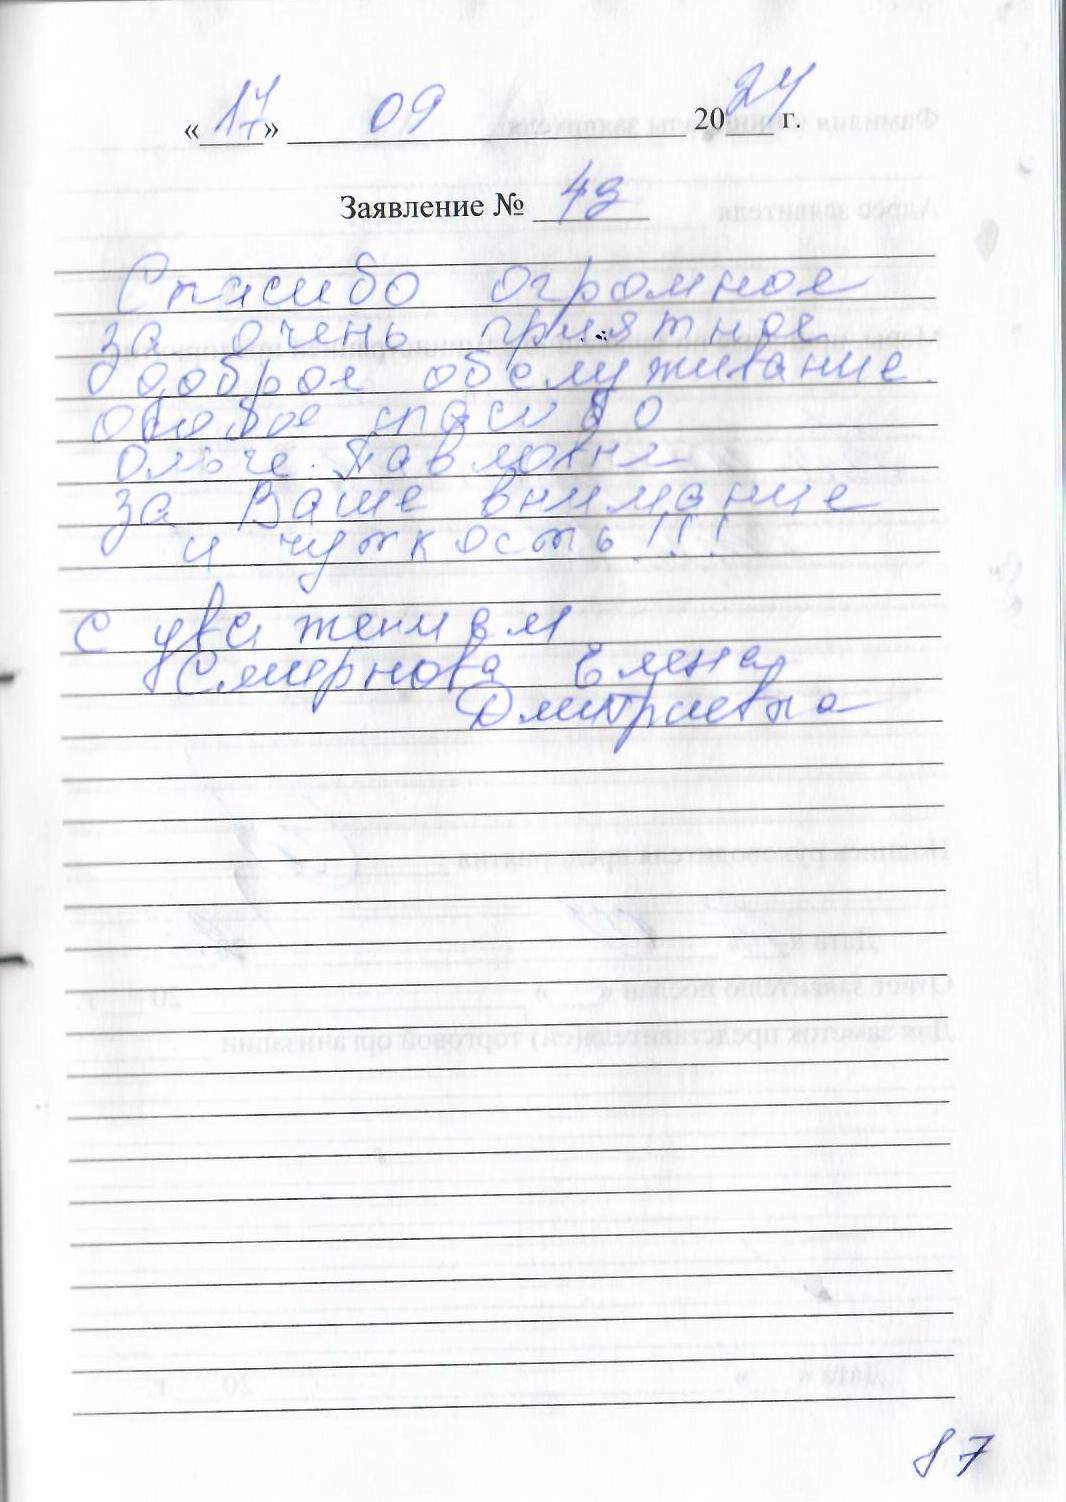 «17» 09 2024 г.
Заявление № 43
Спасибо огромное
за очень приятное
доброе обслуживание.
Особое спасибо
Ольге Павловне
за Ваше внимание
и чуткость!!!
С уважением
Смирнова Елена
Дмитриевна
87